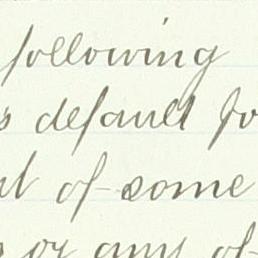 following
s default fo
of some
or any of